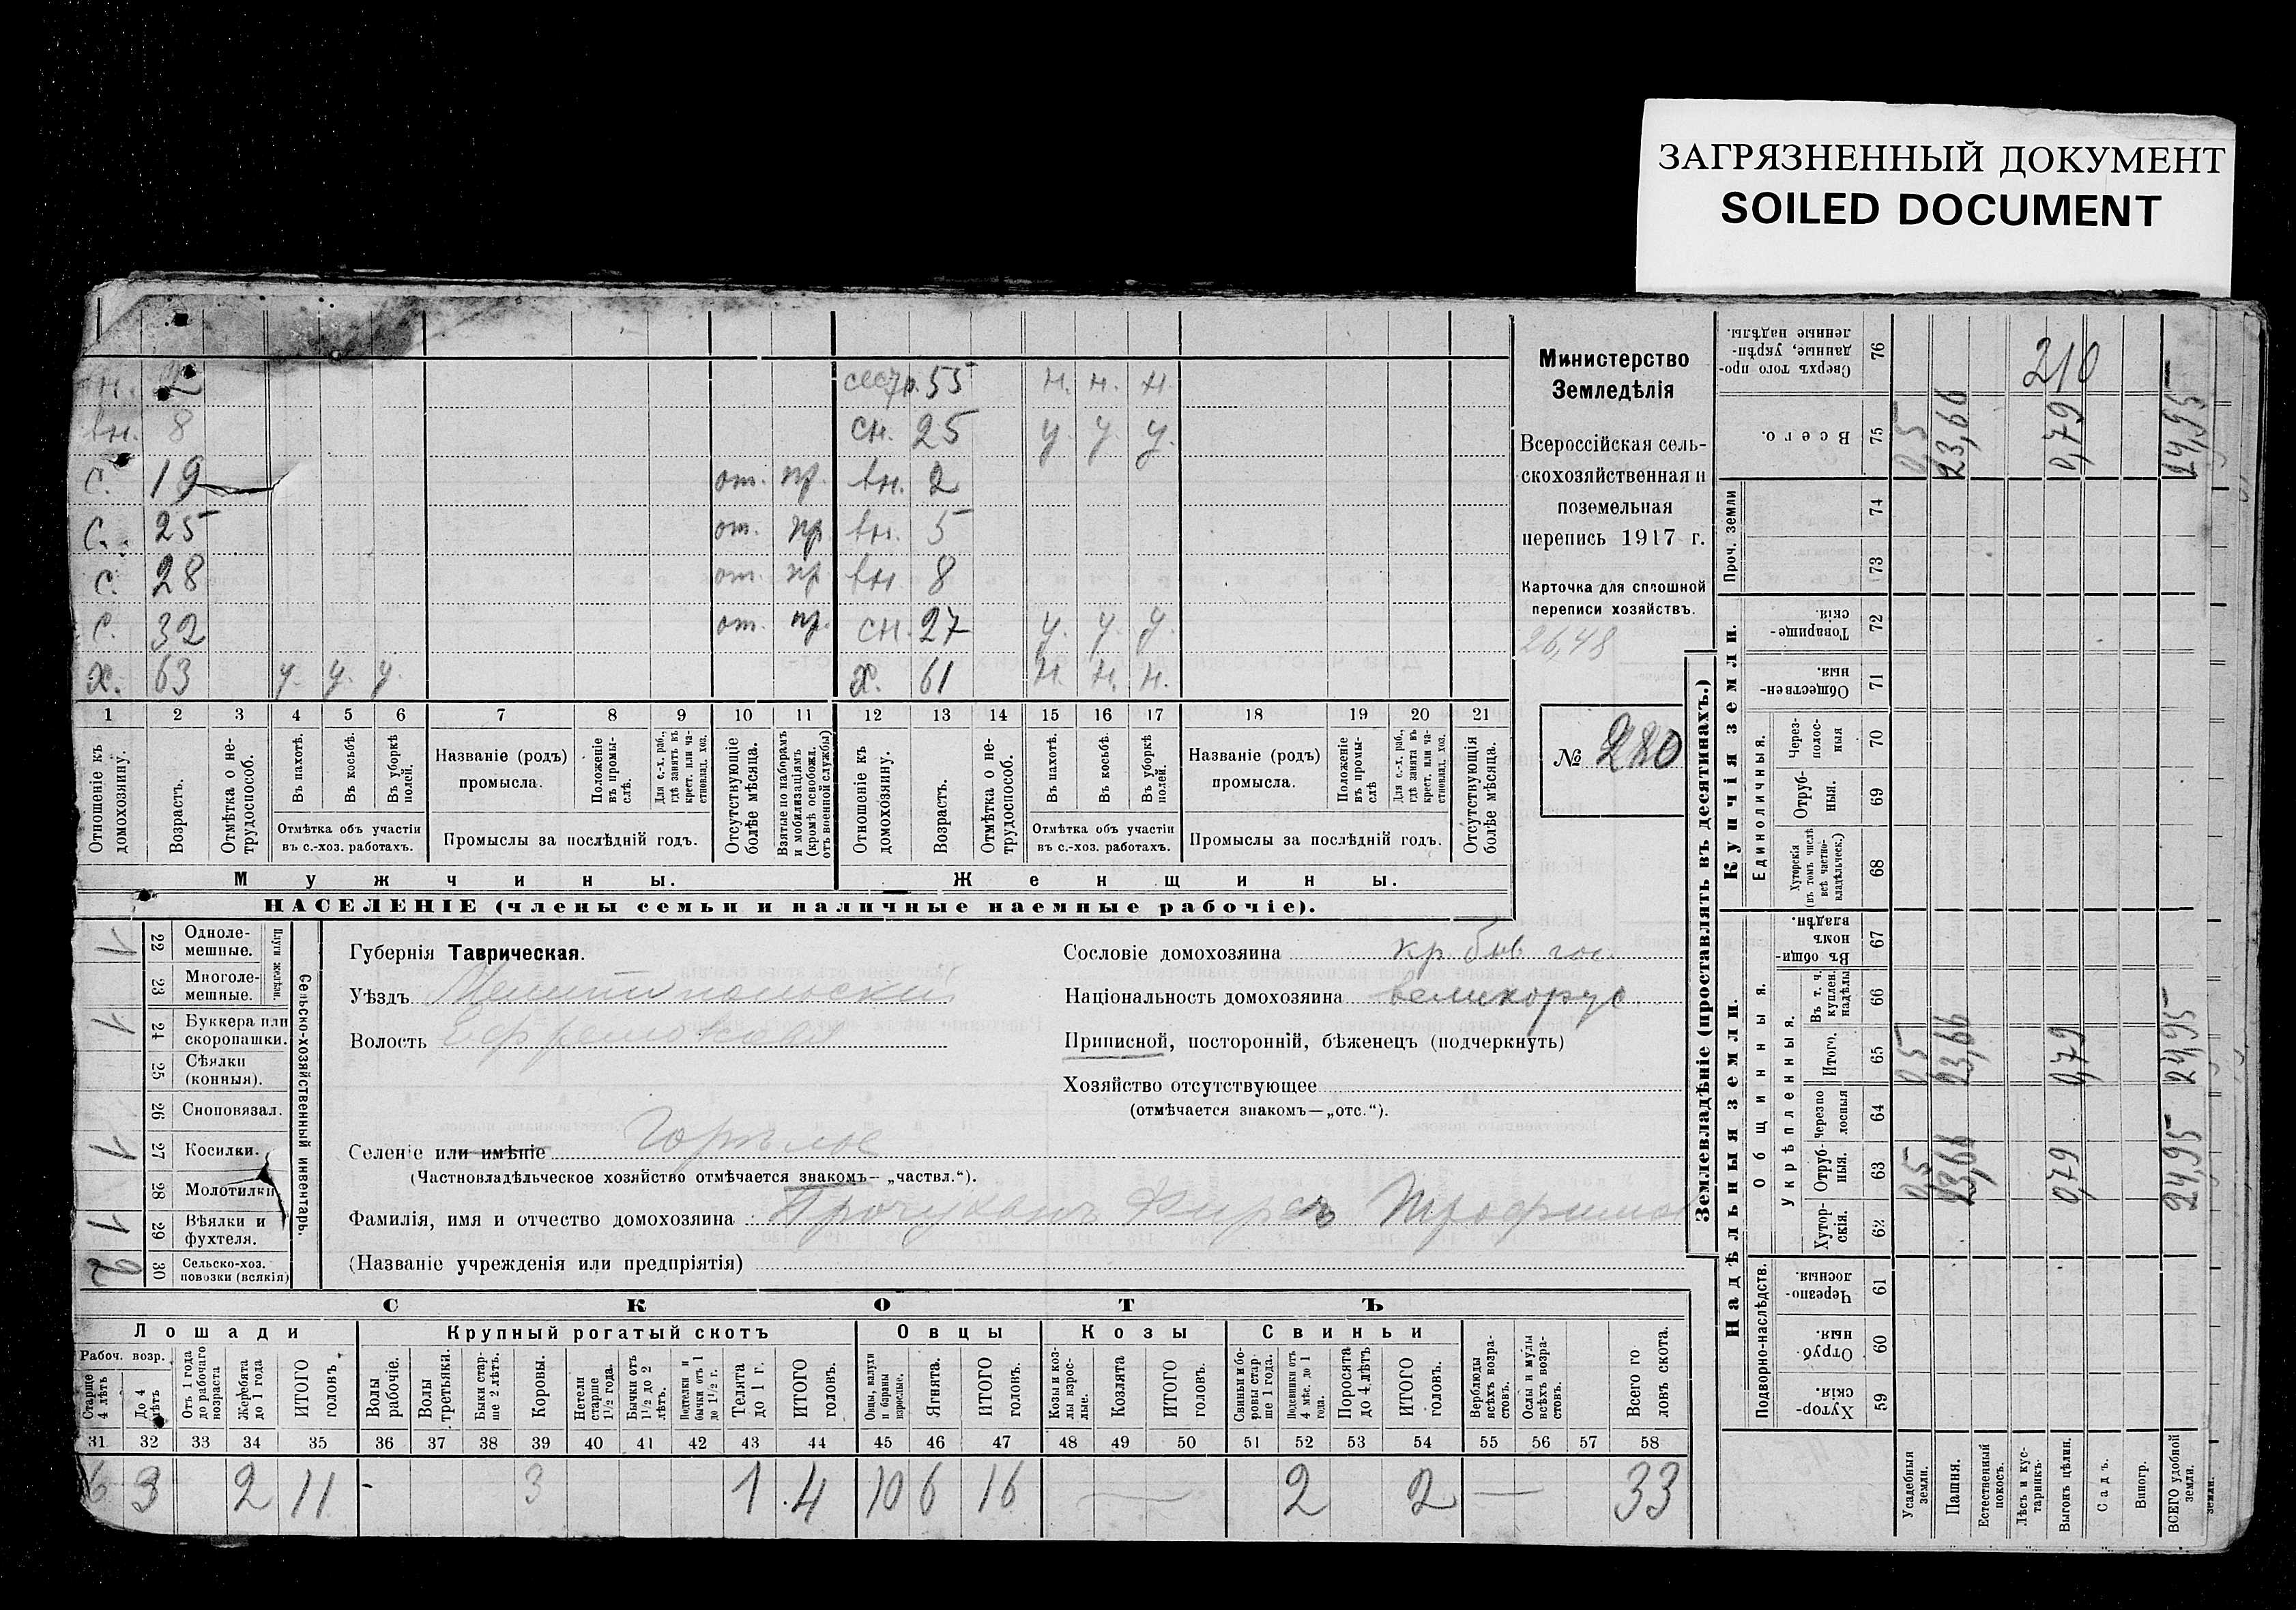 ЗАГРЯЗНЕННЫЙ ДОКУМЕНТ
SOILED DOCUMENT
н. 2 сестр. 55 н. н. н.
вн. 8 сн. 25 у. у. у.
с. 19 от. пр. вн. 2
с. 25 от. пр. вн. 5
с. 28 от. пр вн. 8
с. 32 от. пр. сн. 27 у. у. у.
х. 63 у. у. у. х. 61 н. н. н.
1 2 3 4 5 6 7 8 9 10 11 12 13 14 15 16 17 18 19 20 21
Отношеніе къ домохозяину.
Возрастъ.
Отмѣтка о не-трудоспособ.
Въ пахотѣ.
Въ косьбѣ.
Въ уборкѣ полей.
Отмѣтка объ участіи въ с.-хоз. работахъ.
Названіе (родъ) промысла.
Положеніе въ промы-слѣ.
Для с.-х. раб., гдѣ занятъ въ крест. или ча-стновлад. хоз.
Промыслы за послѣдній годъ.
Отсутствующіе болѣе мѣсяца.
Взятые по наборамъ и мобилизаціямъ (кромѣ освобожд. отъ военной службы)
Отношеніе къ домохозяину.
Возрастъ.
Отмѣтка о не-трудоспособ.
Въ пахотѣ.
Въ косьбѣ.
Въ уборкѣ полей.
Отмѣтка объ участіи въ с.-хоз. работахъ.
Названіе (родъ) промысла.
Положеніе въ промы-слѣ
Для с.-х. раб., гдѣ занята въ крест. или ча-стновлад. хоз.
Промыслы за послѣдній годъ.
Отсутствующія болѣе мѣсяца.
Мужчины.
Женщины.
НАСЕЛЕНІЕ (члены семьи и наличные наемные рабочіе).
Министерство
Земледѣлія
Всероссійская сель-
скохозяйственная и
поземельная
перепись 1917 г.
Карточка для сплошной
переписи хозяйствъ.
26,48
№ 280
Сельско-хозяйственный инвентарь.
Плуги желѣзн.
1 22 Одноле-мешные.
23 Многоле-мешные.
1 24 Буккера или скоропашки.
25 Сѣялки (конныя).
26 Сноповязал.
1 27 Косилки.
28 Молотилки
1 29 Вѣялки и фухтеля.
2 30 Сельско-хоз. повозки (всякія)
Губернія Таврическая.
Уѣздъ Мелитопольскій
Волость
Селеніе или имѣніе Горѣлое
(Частновладѣльческое хозяйство отмѣчается знакомъ— „частвл.“).
Фамилія, имя и отчество домохозяина Трофимов
(Названіе учрежденія или предпріятія)
Сословіе домохозяина кр. быв гос.
Національность домохозяина великорус
Приписной, посторонній, бѣженецъ (подчеркнуть)
Хозяйство отсутствующее
(отмѣчается знакомъ—„отс.“).
СКОТЪ
Лошади Крупный рогатый скотъ Овцы Козы Свиньи
Рабоч. возр.
Старше 4 лѣтъ
До 4 лѣтъ
Отъ 1 года до рабочаго возраста
Жеребята до 1 года
ИТОГО головъ.
Волы рабочіе.
Волы третьяки.
Быки стар-ше 2 лѣтъ.
Коровы.
Нетели старше 1½ года.
Бычки отъ 1½ до 2 лѣтъ.
Подтелки и бычки отъ 1 до 1½ г.
Телята до 1 г.
ИТОГО головъ.
Овцы, валухи и бараны взрослые.
Ягнята.
ИТОГО головъ.
Козы и коз-лы взрос-лые.
Козлята
ИТОГО головъ.
Свиньи и бо-ровы стар-ше 1 года.
Подсвинки отъ 4 мѣс. до 1 года.
Поросята до 4 лѣтъ
ИТОГО головъ.
Верблюды всѣхъ возра-стовъ.
Ослы и мулы всѣхъ возра-стовъ.
Всего го ловъ скота.
31 32 33 34 35 36 37 38 39 40 41 42 43 44 45 46 47 48 49 50 51 52 53 54 55 56 57 58
6 3 2 11 - 3 1 4 10 6 16 — 2 2 — 33
Землевладѣніе (проставлять въ десятинахъ.)
Надѣльныя земли. Купчія земли.
Подворно-наслѣдств.
Общинныя.
Укрѣпленныя.
Единоличныя.
Проч. земли
Хутор-скія. 59
Отруб-ныя. 60
Черезпо-лосныя. 61
Хутор-скія. 62
Отруб-ныя. 63
Черезпо лосныя 64
Итого. 65
Въ т. ч. куплен. надѣлы 66
Въ общи номъ владѣн. 67
Хуторскія (въ томъ числѣ всѣ частно-владѣльческ.) 68
Отруб-ныя. 69
Через-полос-ныя 70
Обществен-ныя. 71
Товарище-скія. 72
73
74
Всего. 75
Сверхъ того про-данные, укрѣп-ленные надѣлы. 76
Усадебныя земли. 0,5 0,5 0,5
Пашня. 23,66 23,66 23,66
Естественный покосъ.
Лѣсъ и кус-тарникъ.
Выгонъ цѣлин. 0,79 0,79 0,79
Садъ.
Виногр.
ВСЕГО удобной земли. 24,95 24,95 24,95
земли.
210